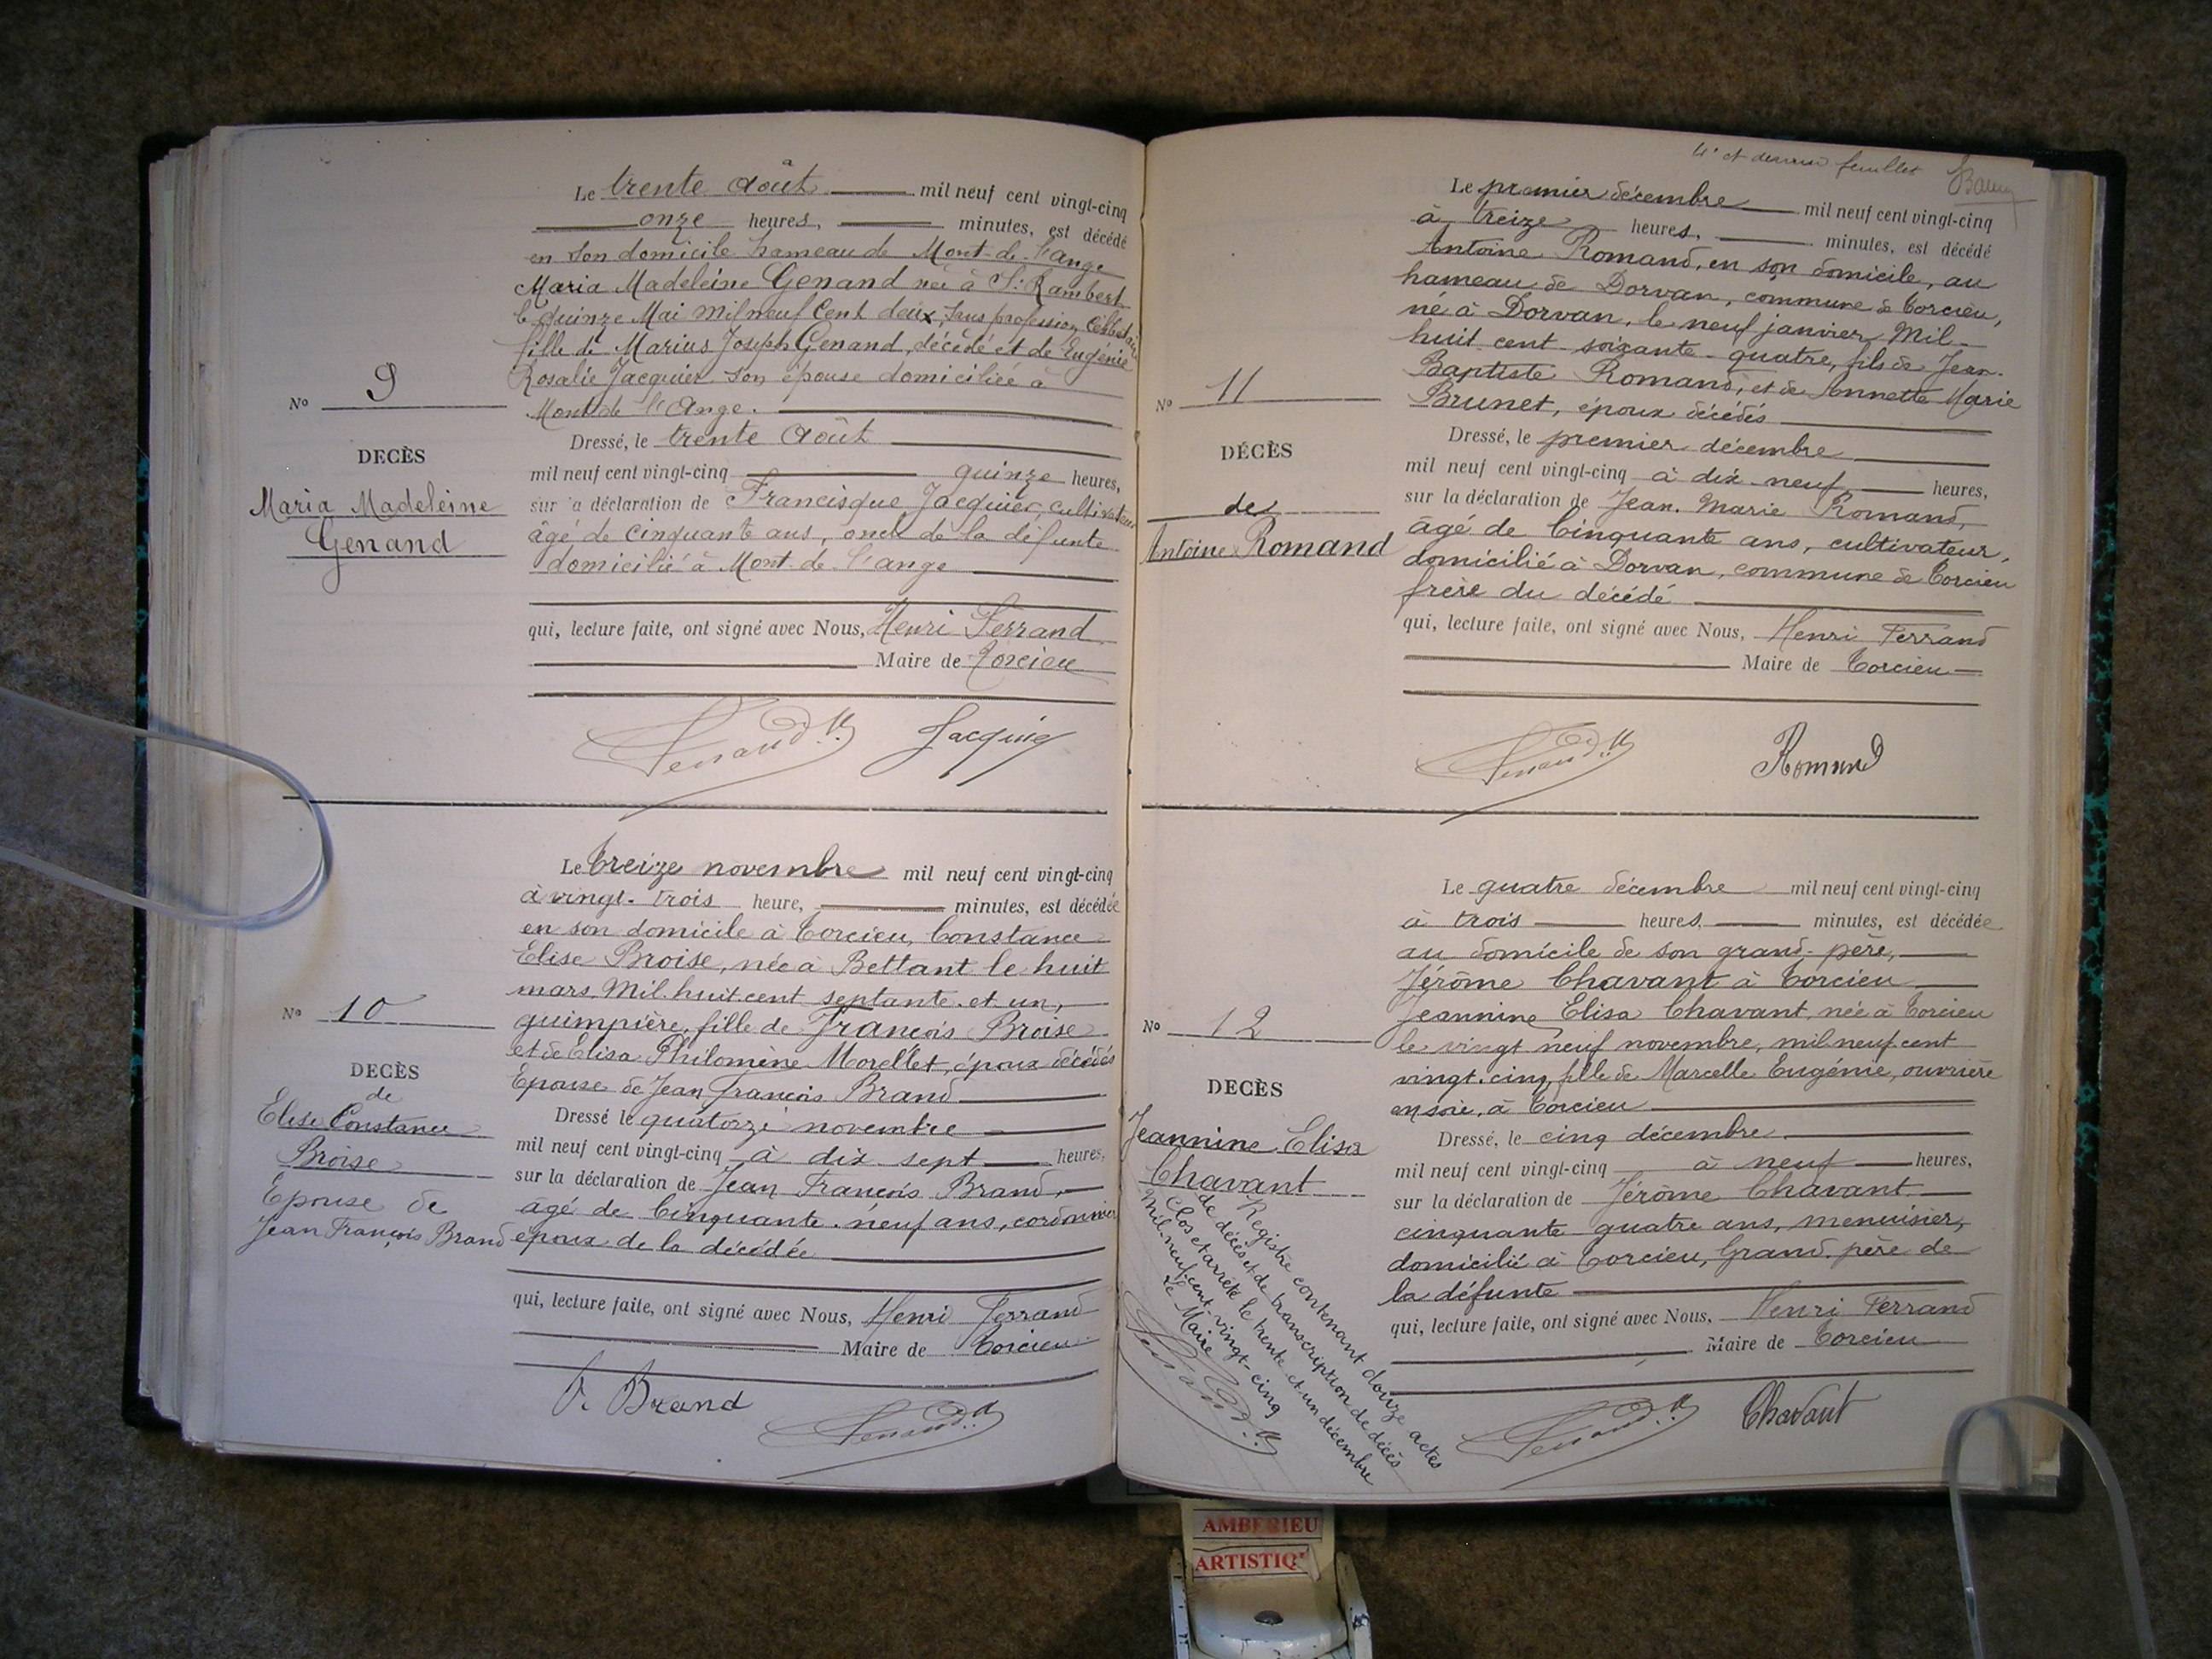 Le trente Août mil neuf cent vingt-cinq
à
onze heures, minutes, est décédé
en son domicile hameau de Mont-de-l'ange
Maria Madeleine Genand née à St Rambert
le quinze Mai mil neuf cent deux, sans profession, célibataire
fille de Marius Joseph Genand, décédé et de Eugénie
Rosalie Jacquier son épouse domiciliée à
Mont de l'Ange.
No 9
DECÈS
Maria Madeleine
Genand
Dressé, le trente Août
mil neuf cent vingt-cinq quinze heures,
sur la déclaration de Francisque Jacquier, cultivateur
âgé de cinquante ans, oncle de la défunte
domicilié à Mont-de-l'ange
qui, lecture faite, ont signé avec Nous, Henri Ferrand
Maire de Torcieu
Ferrand Jacquier
Le treize novembre mil neuf cent vingt-cinq
à vingt-trois heure, minutes, est décédée
en son domicile à Torcieu, Constance
Elise Broise, née à Bettant le huit
mars, Mil-huit cent septante-et-un,
guimpière, fille de François Broise
et de Elisa Philomène Morellet, époux décédés
Epouse de Jean François Brand
No 10
DECÈS
de
Elise Constance
Broise
Epouse de
Jean François Brand
Dressé le quatorze novembre
mil neuf cent vingt-cinq à dix-sept heures,
sur la déclaration de Jean François Brand,
âgé de Cinquante-neuf ans, cordonnier
époux de la décédée
qui, lecture faite, ont signé avec Nous, Henri Ferrand
Maire de Torcieu
F. Brand Ferrand
4e et dernier feuillet
Le premier décembre mil neuf cent vingt-cinq
à treize heures, minutes, est décédé
Antoine Romand, en son domicile, au
hameau de Dorvan, commune de Torcieu,
né à Dorvan, le neuf janvier Mil-
huit cent soixante-quatre, fils de Jean-
Baptiste Romand, et de Annette Marie
Brunet, époux décédés
No 11
DÉCÈS
de
Antoine Romand
Dressé, le premier décembre
mil neuf cent vingt-cinq à dix-neuf heures,
sur la déclaration de Jean-Marie Romand,
âgé de Cinquante ans, cultivateur,
domicilié à Dorvan, commune de Torcieu
frère du décédé
qui, lecture faite, ont signé avec Nous, Henri Ferrand
Maire de Torcieu
Ferrand Romand
Le quatre décembre mil neuf cent vingt-cinq
à trois heures, minutes, est décédée
au domicile de son grand-père,
Jérôme Chavant à Torcieu
Jeannine Elisa Chavant, née à Torcieu
le vingt neuf novembre, mil neuf cent
vingt-cinq, fille de Marcelle Eugénie, ouvrière
en soie, à Torcieu
No 12
DECÈS
Jeannine Elisa
Chavant
Dressé, le cinq décembre
mil neuf cent vingt-cinq à neuf heures,
sur la déclaration de Jérôme Chavant
cinquante quatre ans, menuisier,
domicilié à Torcieu, Grand-père de
la défunte
qui, lecture faite, ont signé avec Nous, Henri Ferrand
Maire de Torcieu
Ferrand Chavant
Registre contenant douze actes
de décès et de transcription de décès
Clos et arrêté le trente et un décembre
Mil-neuf-cent-vingt-cinq
Le Maire
Ferrand
AMBERIEU
ARTISTIQ